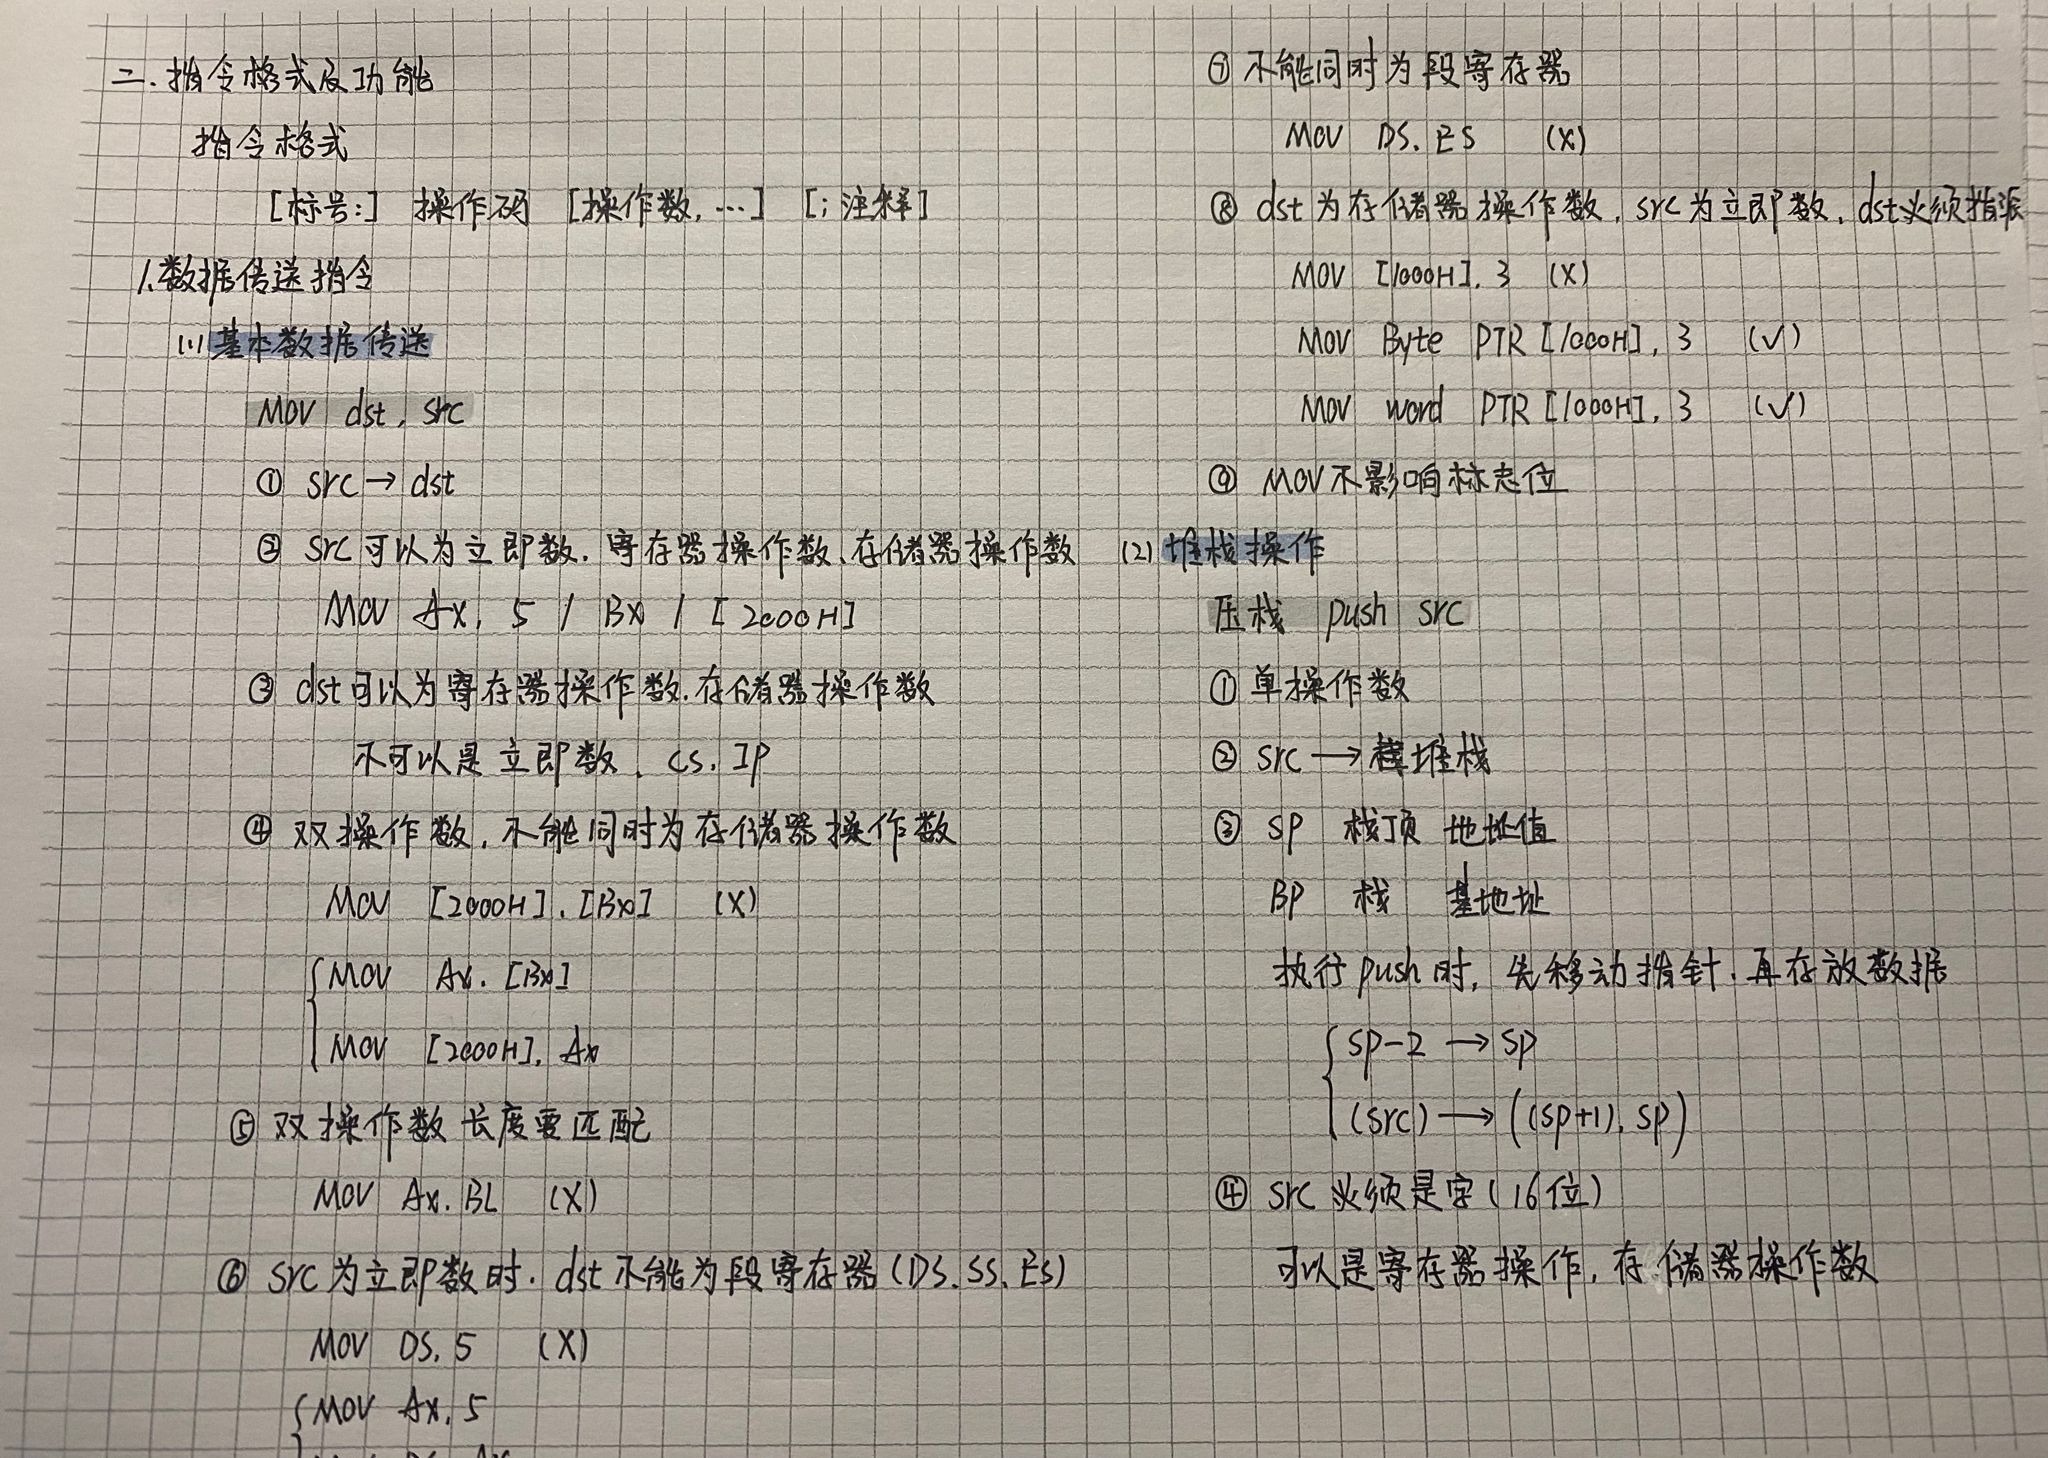 二.指令格式及功能
指令格式
[标号:] 操作码 [操作数,…] [;注释]
1.数据传送指令
(1)基本数据传送
MOV dst, src
① src→dst
② src可以为立即数.寄存器操作数、存储器操作数
MOV AX, 5 / BX / [2000H]
③ dst可以为寄存器操作数.存储器操作数
不可以是立即数、CS.IP
④ 双操作数,不能同时为存储器操作数
MOV [2000H],[BX] (X)
MOV AX,[BX]
MOV [2000H], AX
⑤ 双操作数长度要匹配
MOV AX,BL (X)
⑥ src为立即数时.dst不能为段寄存器(DS.SS.ES)
MOV DS,5 (X)
MOV AX,5
⑦ 不能同时为段寄存器
MOV DS,ES (X)
⑧ dst为存储器操作数,src为立即数,dst必须指派
MOV [1000H],3 (X)
MOV Byte PTR [1000H],3 (√)
MOV word PTR [1000H],3 (√)
⑨ MOV不影响标志位
(2)堆栈操作
压栈 push src
①单操作数
② src→堆栈
③ SP 栈顶 地址值
BP 栈 基地址
执行push时,先移动指针.再存放数据
SP-2→SP
(src)→((SP+1),SP)
④ src必须是字(16位)
可以是寄存器操作,存储器操作数